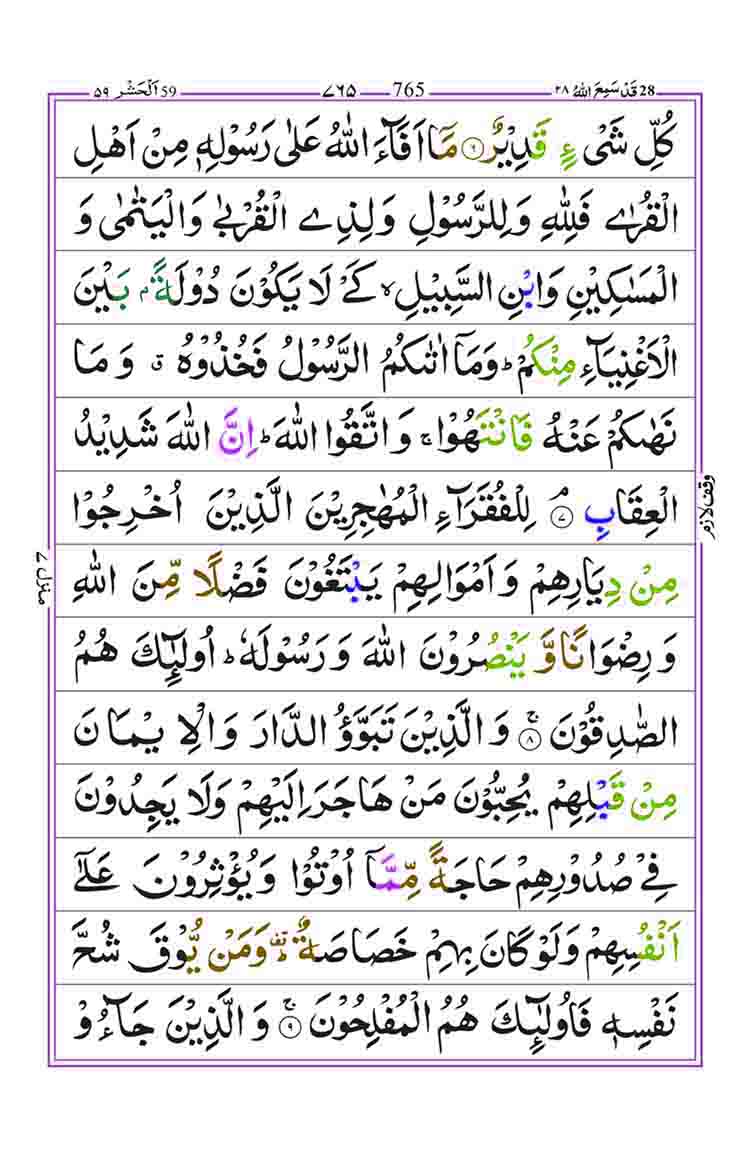 28 قَدْ سَمِعَ اللهُ ٢٨ 765 ٧٦٥ 59 اَلْحَشْر ٥٩
كُلِّ شَیْءٍ قَدِیْرٌ ۶ مَاۤ اَفَآءَ اللهُ عَلٰی رَسُوْلِهٖ مِنْ اَهْلِ
الْقُرٰی فَلِلّٰهِ وَلِلرَّسُوْلِ وَلِذِی الْقُرْبٰی وَالْیَتٰمٰی وَ
الْمَسٰكِیْنِ وَابْنِ السَّبِیْلِ ۙ كَیْ لَا یَكُوْنَ دُوْلَةًۢ بَیْنَ
الْاَغْنِیَآءِ مِنْكُمْ ؕ وَمَاۤ اٰتٰىكُمُ الرَّسُوْلُ فَخُذُوْهُ ۗ وَمَا
نَهٰىكُمْ عَنْهُ فَانْتَهُوْا ۚ وَاتَّقُوا اللهَ ؕ اِنَّ اللهَ شَدِیْدُ
الْعِقَابِ ۘ ۷ لِلْفُقَرَآءِ الْمُهٰجِرِیْنَ الَّذِیْنَ اُخْرِجُوْا
وقف لازم
مِنْ دِیَارِهِمْ وَاَمْوَالِهِمْ یَبْتَغُوْنَ فَضْلًا مِّنَ اللهِ
منزل ٧
وَرِضْوَانًا وَّیَنْصُرُوْنَ اللهَ وَرَسُوْلَهٗ ؕ اُولٰٓىِٕكَ هُمُ
الصّٰدِقُوْنَ ۚ ۸ وَالَّذِیْنَ تَبَوَّؤُ الدَّارَ وَالْاِیْمَانَ
مِنْ قَبْلِهِمْ یُحِبُّوْنَ مَنْ هَاجَرَ اِلَیْهِمْ وَلَا یَجِدُوْنَ
فِیْ صُدُوْرِهِمْ حَاجَةً مِّمَّاۤ اُوْتُوْا وَیُؤْثِرُوْنَ عَلٰۤی
اَنْفُسِهِمْ وَلَوْ كَانَ بِهِمْ خَصَاصَةٌ ۫ؕ وَمَنْ یُّوْقَ شُحَّ
نَفْسِهٖ فَاُولٰٓىِٕكَ هُمُ الْمُفْلِحُوْنَ ۚ ۹ وَالَّذِیْنَ جَآءُوْ